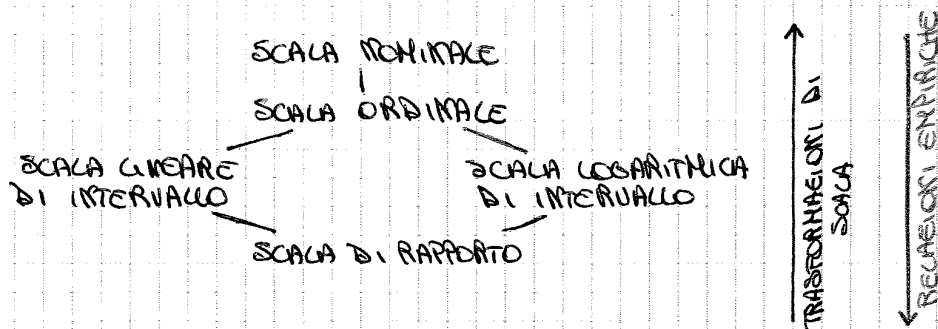 SCALA NOMINALE
SCALA ORDINALE
SCALA LINEARE
DI INTERVALLO
SCALA LOGARITMICA
DI INTERVALLO
SCALA DI RAPPORTO
TRASFORMAZIONI DI
SCALA
RELAZIONI EMPIRICHE